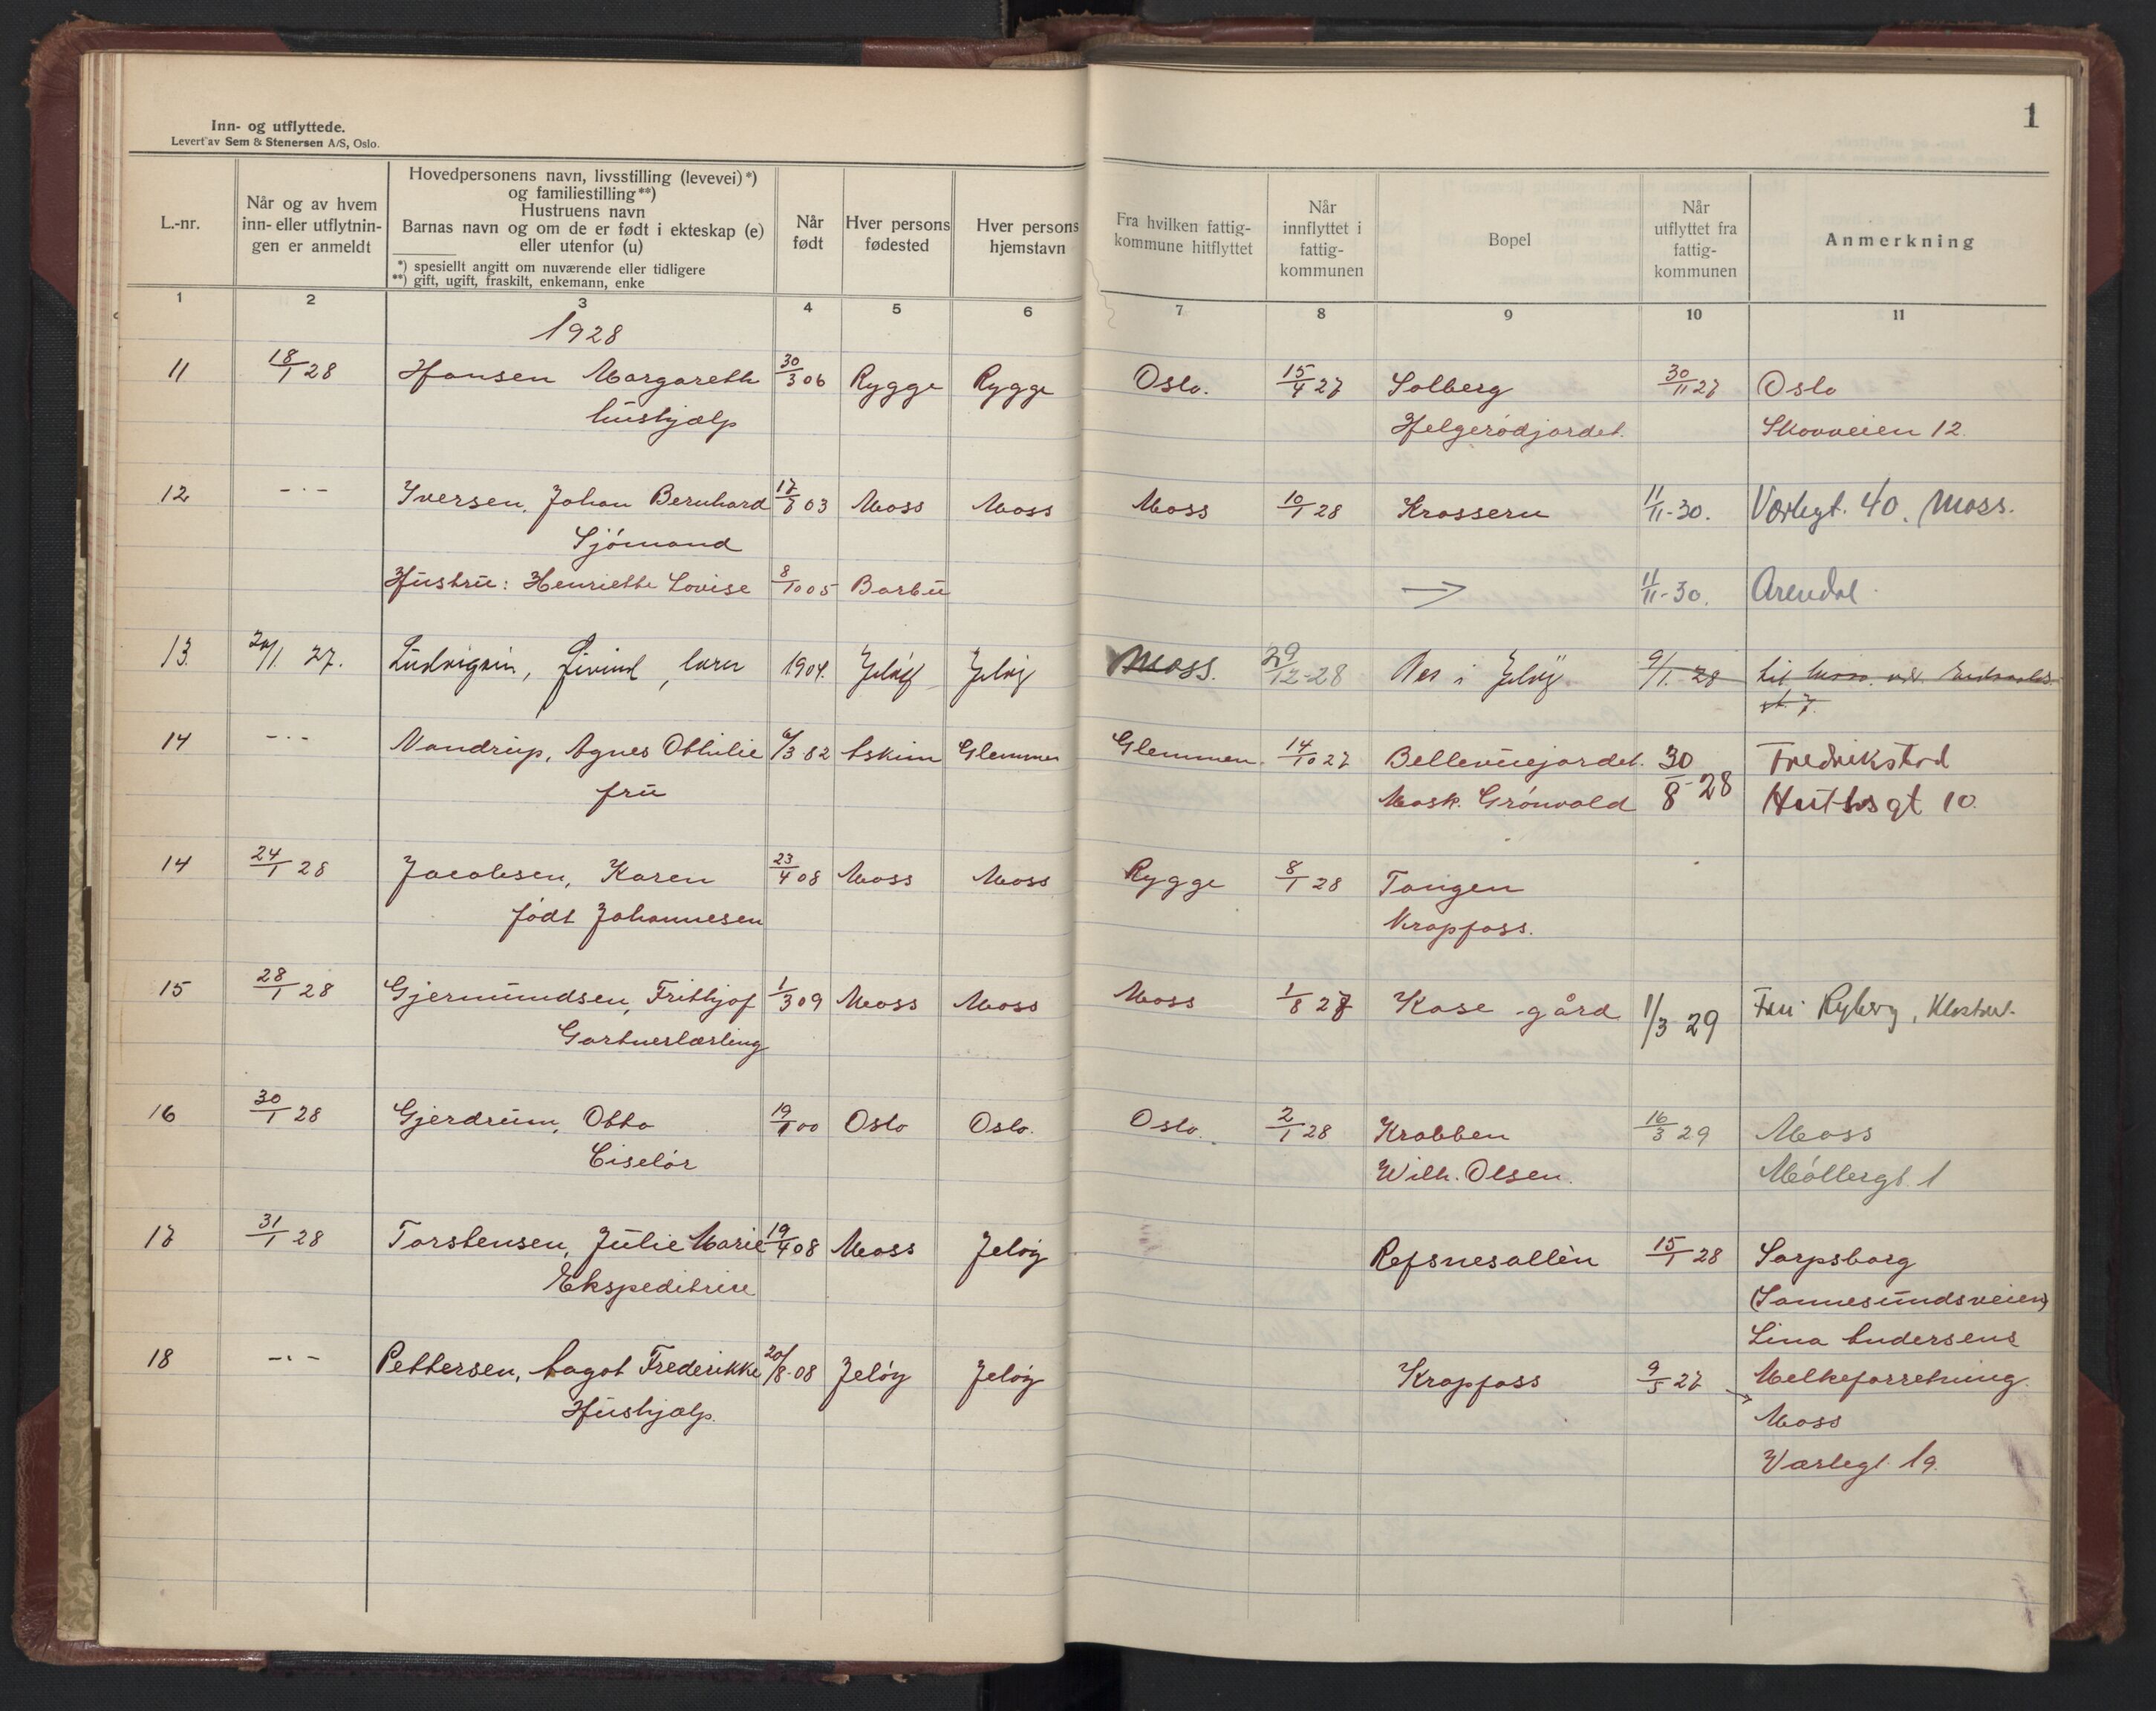 Inn- og utflyttede.
Levert av Sem & Stenersen A/S, Oslo.
1
L.-nr.
Når og av hvem
inn- eller utflytnin-
gen er anmeldt
Hovedpersonens navn, livsstilling (levevei) *)
og familiestilling **)
Hustruens navn
Barnas navn og om de er født i ekteskap (e)
eller utenfor (u)
*) spesiellt angitt om nuværende eller tidligere
**) gift, ugift, fraskilt, enkemann, enke
Når
født
Hver persons
fødested
Hver persons
hjemstavn
Fra hvilken fattig-
kommune hitflyttet
Når
innflyttet i
fattig-
kommunen
Bopel
Når
utflyttet fra
fattig-
kommunen
Anmerkning
1 2 3 4 5 6 7 8 9 10 11
1928
11 18/1 28 Hansen Margareth 30/3 06 Rygge Rygge Oslo. 15/4 27 Solberg 30/11 27 Oslo
hushjælp Helgerødjordet. Skovveien 12.
12 -·- Iversen, Johan Bernhard 17/7 03 Moss Moss Moss 10/1 28 Krossern 11/11-30. Værlegt. 40. Moss.
Sjømand
Hustru: Henriette Lovise 8/10 05 Barbu → 11/11-30. Arendal
13. 20/1. 27. Ludvigsen, Eivind, 1904. Jeløy Jeløy Moss. 29/12-28 Nes i Jeløy 9/1.-28 til Moss.
st. 7.
14 -·- Nandrup, Agnes Othilie 6/3 82 Askim Glemmen Glemmen. 14/10 27 Bellevuejordet. 30/8-28 Fredrikstad
fru Mask. Grönvold gt 10.
14 24/1 28 Jacobsen, Karen 23/4 08 Moss Moss Rygge 8/1 28 Tangen
født Johannesen Krapfoss.
15 28/1 28 Gjermundsen, Frithjof 1/3 09 Moss Moss Moss 1/8 27 Kase gård 1/3 29 Fru Ryberg,
Gartnerlærling
16 30/1 28 Gjerdrum, Otto 19/1 00 Oslo Oslo. Oslo. 2/1 28 Krabben 16/3 29 Moss
Ciselør Wilh. Olsen. Møllergt. 1
17 31/1 28 Torstensen, Julie Marie 19/4 08 Moss Jeløy Refsnesalleèn 15/1 28 Sarpsborg
Ekspeditrise (Sannesundsveien)
Lina Andersens
18 -·- Pettersen, Aagot Frederikke 20/8-08 Jeløy Jeløy Krapfoss 9/5 27 Melkeforretning.
Hushjælp. → Moss
Værlegt. 19.